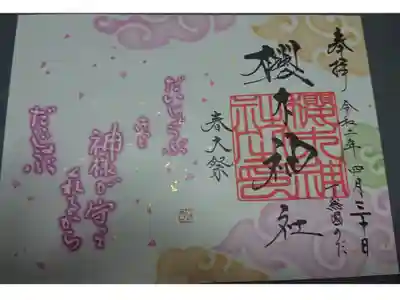 奉拝
令和二年 四月
下総国のだ
櫻木神社
櫻木神社之印
春大祭
だいじょうぶ
神様が守って
くれるから
だいじょうぶ